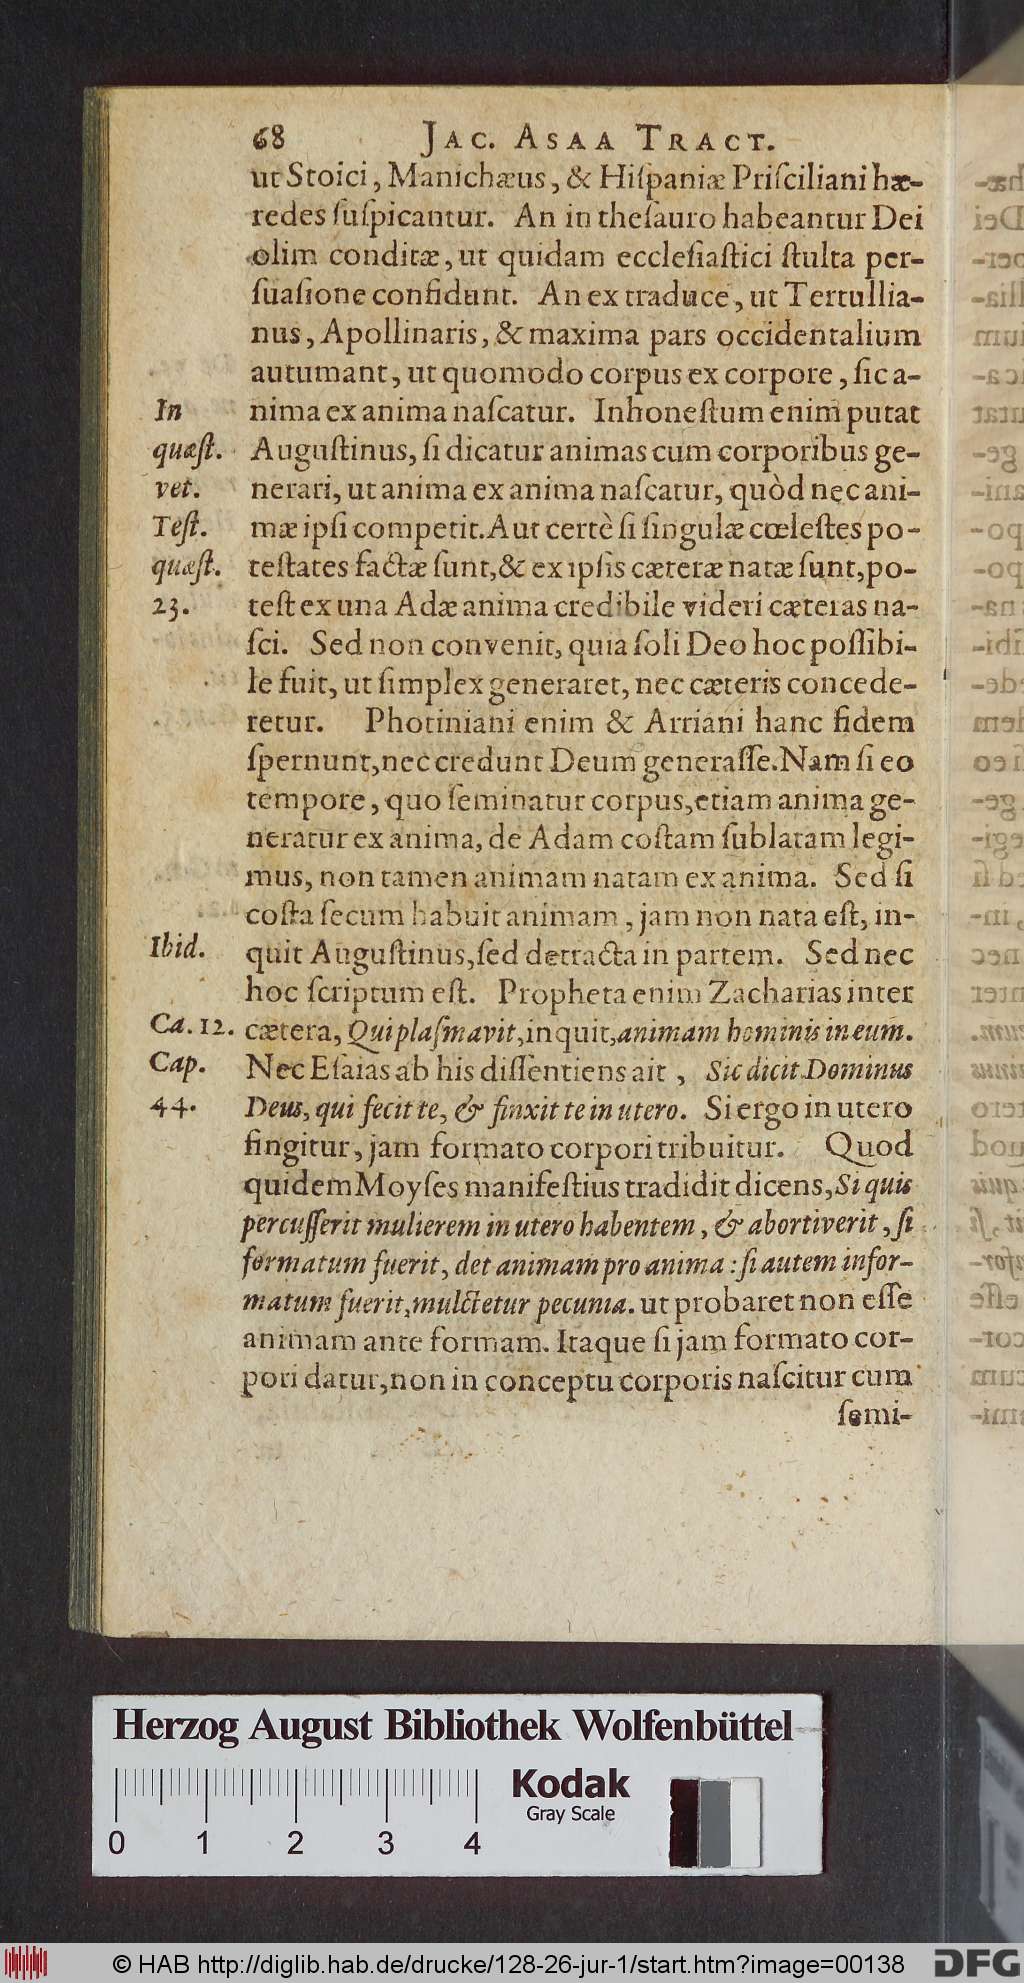 68 JAC. ASAA TRACT.
ut Stoici, Manichæus, & Hiſpaniæ Priſciliani hæ-
redes ſuſpicantur. An in theſauro habeantur Dei
olim conditæ, ut quidam eccleſiaſtici ſtulta per-
ſuaſione confidunt. An ex traduce, ut Tertullia-
nus, Apollinaris, & maxima pars occidentalium
autumant, ut quomodo corpus ex corpore, ſic a-
In
nima ex anima naſcatur. Inhoneſtum enim putat
quæſt.
Auguſtinus, ſi dicatur animas cum corporibus ge-
vet.
nerari, ut anima ex anima naſcatur, quòd nec ani-
Teſt.
mæ ipſi competit. Aut certè ſi ſingulæ cœleſtes po-
quæſt.
teſtates factæ ſunt, & ex ipſis cæteræ natæ ſunt, po-
23.
teſt ex una Adæ anima credibile videri cæteras na-
ſci. Sed non convenit, quia ſoli Deo hoc poſſibi-
le fuit, ut ſimplex generaret, nec cæteris concede-
retur. Photiniani enim & Arriani hanc fidem
ſpernunt, nec credunt Deum generaſſe. Nam ſi eo
tempore, quo ſeminatur corpus, etiam anima ge-
neratur ex anima, de Adam coſtam ſublatam legi-
mus, non tamen animam natam ex anima. Sed ſi
coſta ſecum habuit animam, jam non nata eſt, in-
Ibid.
quit Auguſtinus, ſed detracta in partem. Sed nec
hoc ſcriptum eſt. Propheta enim Zacharias inter
Ca. 12.
cætera, Qui plaſmavit, inquit, animam hominis in eum.
Cap.
Nec Eſaias ab his diſſentiens ait, Sic dicit Dominus
44.
Deus, qui fecit te, & finxit te in utero. Si ergo in utero
fingitur, jam formato corpori tribuitur. Quod
quidem Moyſes manifeſtius tradidit dicens, Si quis
percuſſerit mulierem in utero habentem, & abortiverit, ſi
formatum fuerit, det animam pro anima: ſi autem infor-
matum fuerit, mulctetur pecunia. ut probaret non eſſe
animam ante formam. Itaque ſi jam formato cor-
pori datur, non in conceptu corporis naſcitur cum
ſemi-
Herzog August Bibliothek Wolfenbüttel
Kodak
Gray Scale
0 1 2 3 4
© HAB http://diglib.hab.de/drucke/128-26-jur-1/start.htm?image=00138
DFG